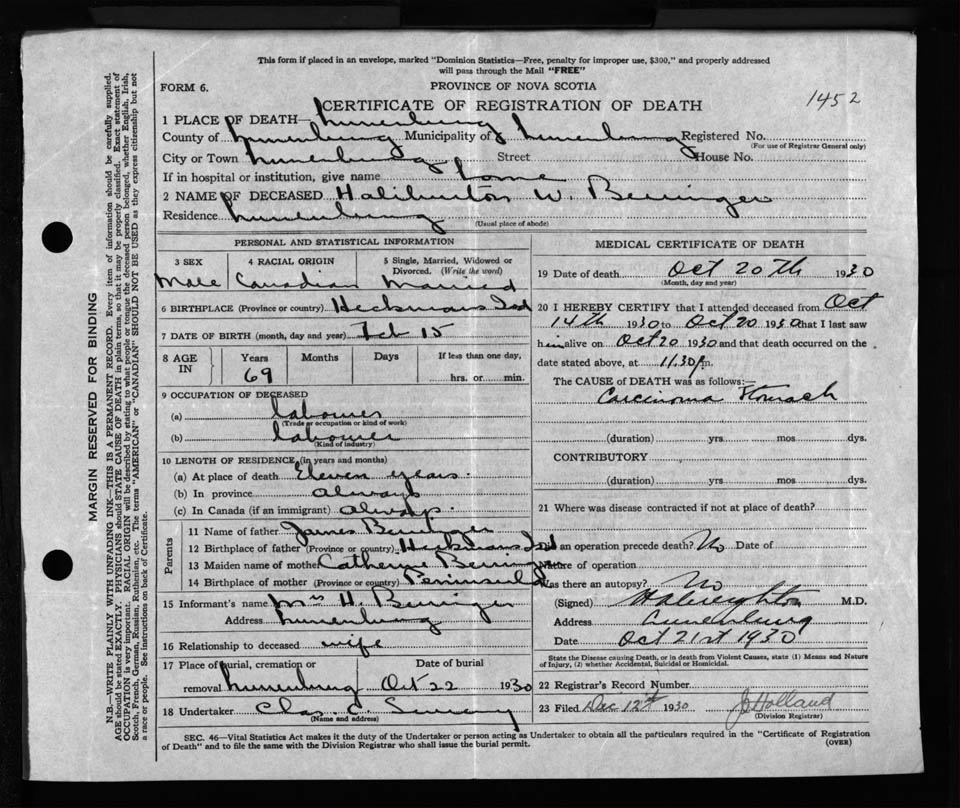 This form if placed in an envelope, marked "Dominion Statistics—Free, penalty for improper use, $300," and properly addressed
will pass through the Mail "FREE"
FORM 6.
PROVINCE OF NOVA SCOTIA
CERTIFICATE OF REGISTRATION OF DEATH
1452
1 PLACE OF DEATH— Lunenburg
County of Lunenburg Municipality of Lunenburg Registered No.
(For use of Registrar General only)
City or Town Lunenburg Street House No.
If in hospital or institution, give name home
2 NAME OF DECEASED Haliburton W. Beringer
Residence Lunenburg
(Usual place of abode)
PERSONAL AND STATISTICAL INFORMATION
3 SEX 4 RACIAL ORIGIN 5 Single, Married, Widowed or
Divorced. (Write the word)
Male Canadian Married
6 BIRTHPLACE (Province or country) Heckmans Isd
7 DATE OF BIRTH (month, day and year) Feb 15
8 AGE IN Years Months Days If less than one day,
69 hrs. or min.
9 OCCUPATION OF DECEASED
(a) labourer
(Trade or occupation or kind of work)
(b) labourer
(Kind of industry)
10 LENGTH OF RESIDENCE (in years and months)
(a) At place of death Eleven years
(b) In province always
(c) In Canada (if an immigrant) always
Parents
11 Name of father James Beringer
12 Birthplace of father (Province or country) Heckmans Isd
13 Maiden name of mother Catherine Bering
14 Birthplace of mother (Province or country) Peninsula
15 Informant's name Mrs H. Beringer
Address Lunenburg
16 Relationship to deceased wife
17 Place of burial, cremation or Date of burial
removal Lunenburg Oct 22 1930
18 Undertaker Chas. C.
(Name and address)
MEDICAL CERTIFICATE OF DEATH
19 Date of death Oct 20th 1930
(Month, day and year)
20 I HEREBY CERTIFY that I attended deceased from Oct
14th 1930 to Oct 20 1930 that I last saw
him alive on Oct 20 1930 and that death occurred on the
date stated above, at 11.30 p.m.
The CAUSE of DEATH was as follows:—
Carcinoma Stomach
(duration) yrs. mos. dys.
CONTRIBUTORY
(duration) yrs. mos. dys.
21 Where was disease contracted if not at place of death?
Did an operation precede death? No Date of
Nature of operation
Was there an autopsy? No
(Signed) M.D.
Address Lunenburg
Date Oct 21st 1930
State the Disease causing Death, or in death from Violent Causes, state (1) Means and Nature
of Injury, (2) whether Accidental, Suicidal or Homicidal.
22 Registrar's Record Number
23 Filed Dec 12th 1930 J Holland
(Division Registrar)
SEC. 46—Vital Statistics Act makes it the duty of the Undertaker or person acting as Undertaker to obtain all the particulars required in the "Certificate of Registration
of Death" and to file the same with the Division Registrar who shall issue the burial permit.
(OVER)
MARGIN RESERVED FOR BINDING
N.B.—WRITE PLAINLY WITH UNFADING INK—THIS IS A PERMANENT RECORD. Every item of information should be carefully supplied.
AGE should be stated EXACTLY. PHYSICIANS should STATE CAUSE OF DEATH in plain terms, so that it may be properly classified. Exact statement of
OCCUPATION is very important. RACIAL ORIGIN will be described by stating to what people or tongue the deceased person belonged, whether English, Irish,
Scotch, French, German, Russian, Ruthenian, etc. The terms "AMERICAN" or "CANADIAN" SHOULD NOT BE USED as they express citizenship but not
a race or people. See instructions on back of Certificate.